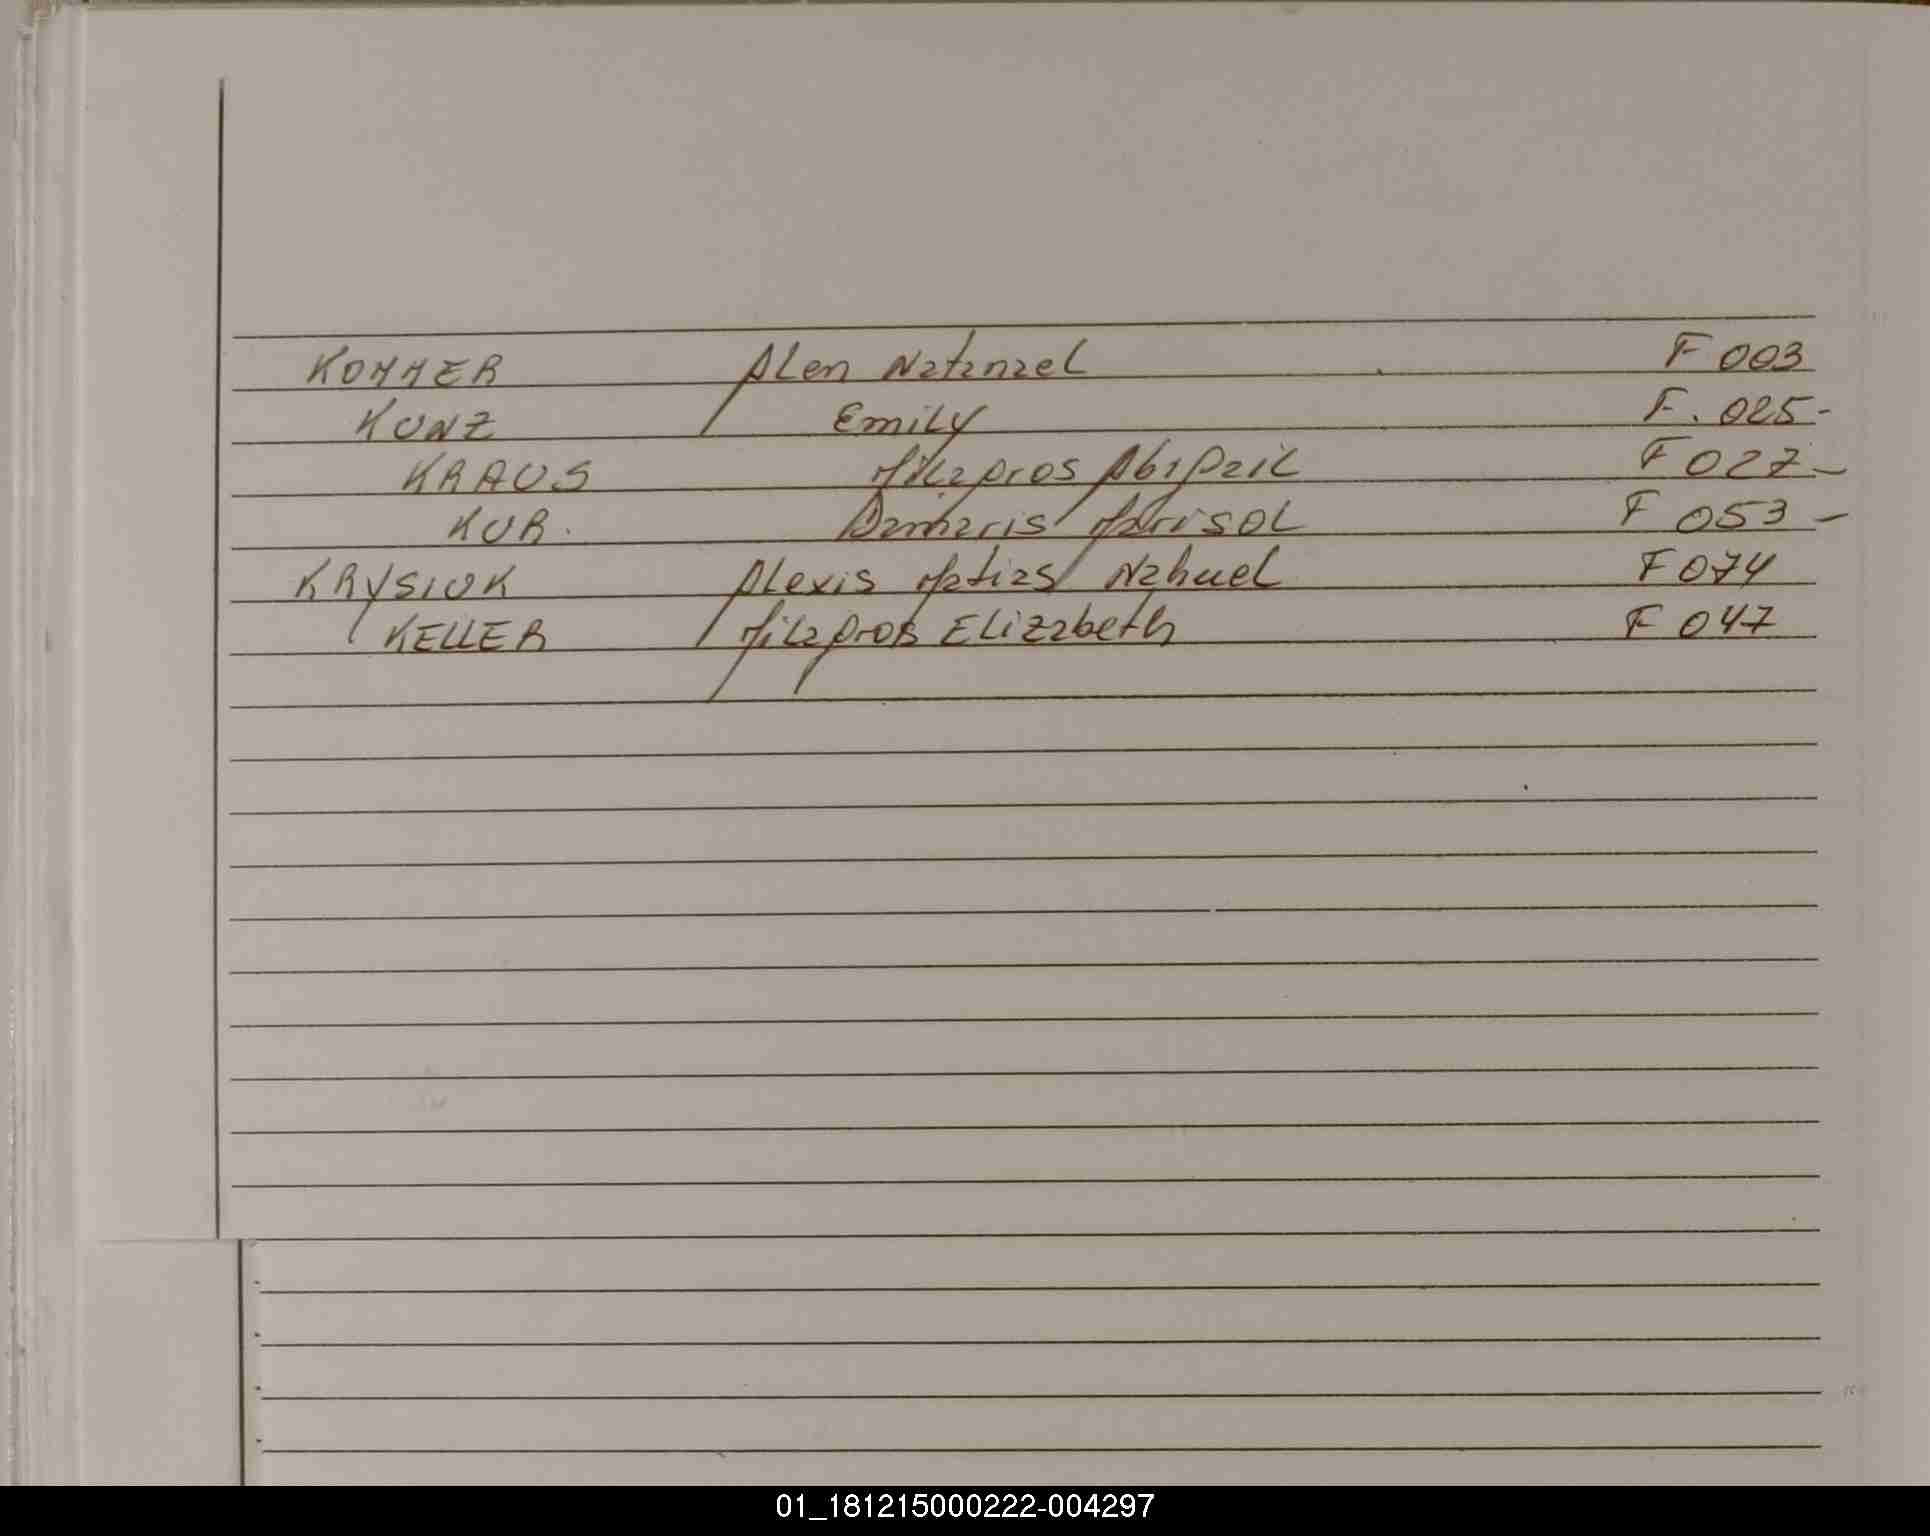 KOMMER Alen Natanael F 003
KUNZ Emily F. 025-
KRAUS Milagros Abigail F 027-
KUR. Damaris Marisol F 053-
KRYSIUK Alexis Matias Nahuel F 074
KELLER Milagros Elizabeth F 047
01_181215000222-004297